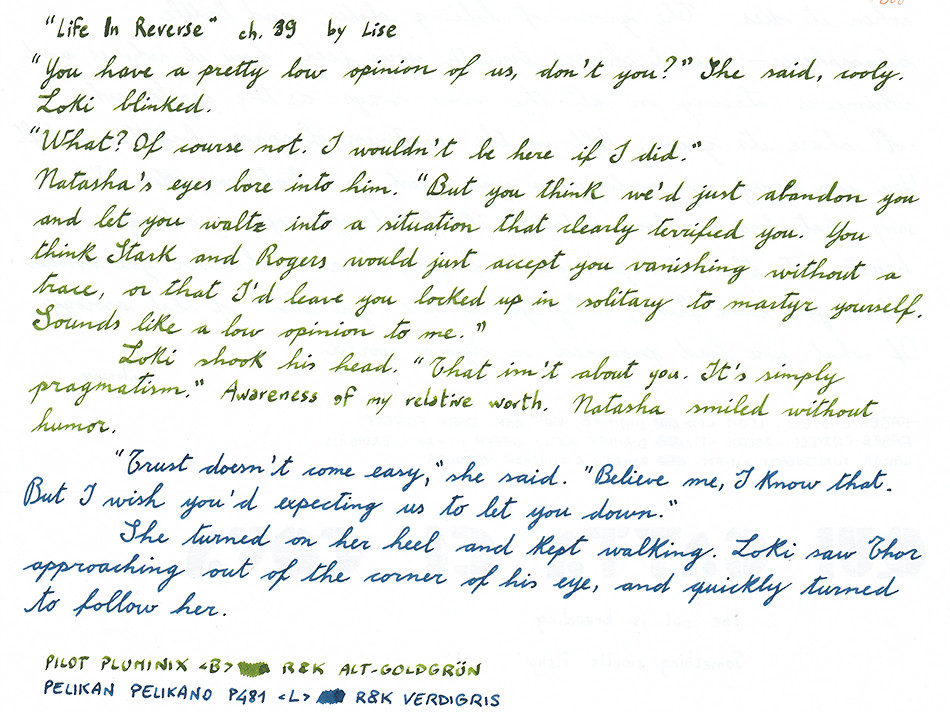 "Life In Reverse" ch. 39 by Lise
"You have a pretty low opinion of us, don't you?" She said, cooly.
Loki blinked.
"What? Of course not. I wouldn't be here if I did."
Natasha's eyes bore into him. "But you think we'd just abandon you
and let you waltz into a situation that clearly terrified you. You
think Stark and Rogers would just accept you vanishing without a
trace, or that I'd leave you locked up in solitary to martyr yourself.
Sounds like a low opinion to me."
Loki shook his head. "That isn't about you. It's simply
pragmatism." Awareness of my relative worth. Natasha smiled without
humor.
"Trust doesn't come easy," she said. "Believe me, I know that.
But I wish you'd expecting us to let you down."
She turned on her heel and kept walking. Loki saw Thor
approaching out of the corner of his eye, and quickly turned
to follow her.
PILOT PLUMINIX <B> R&K ALT-GOLDGRÜN
PELIKAN PELIKANO P481 <L> R&K VERDIGRIS